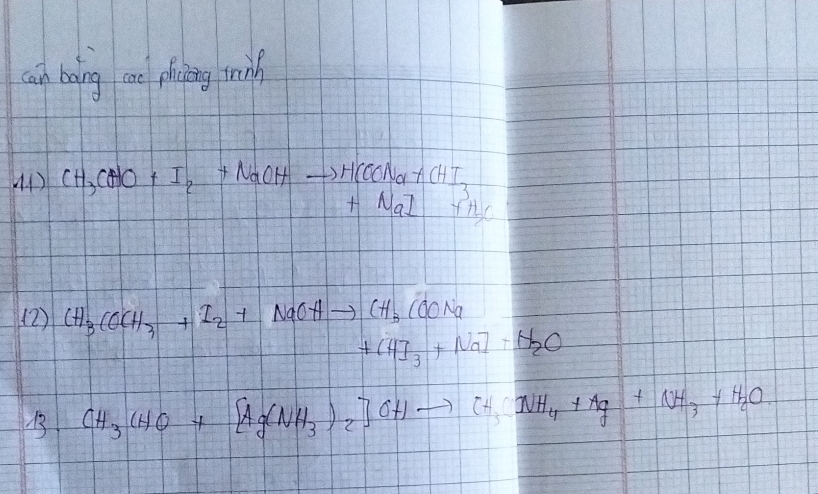 cân bằng các phương trình
11) CH₃CHO + I₂ + NaOH → HCOONa + CHI₃
+ NaI + H₂O
12) CH₃COCH₃ + I₂ + NaOH → CH₃COONa
+ CHI₃ + NaI + H₂O
13. CH₃CHO + [Ag(NH₃)₂]OH → NH₄ + Ag + NH₃ + H₂O